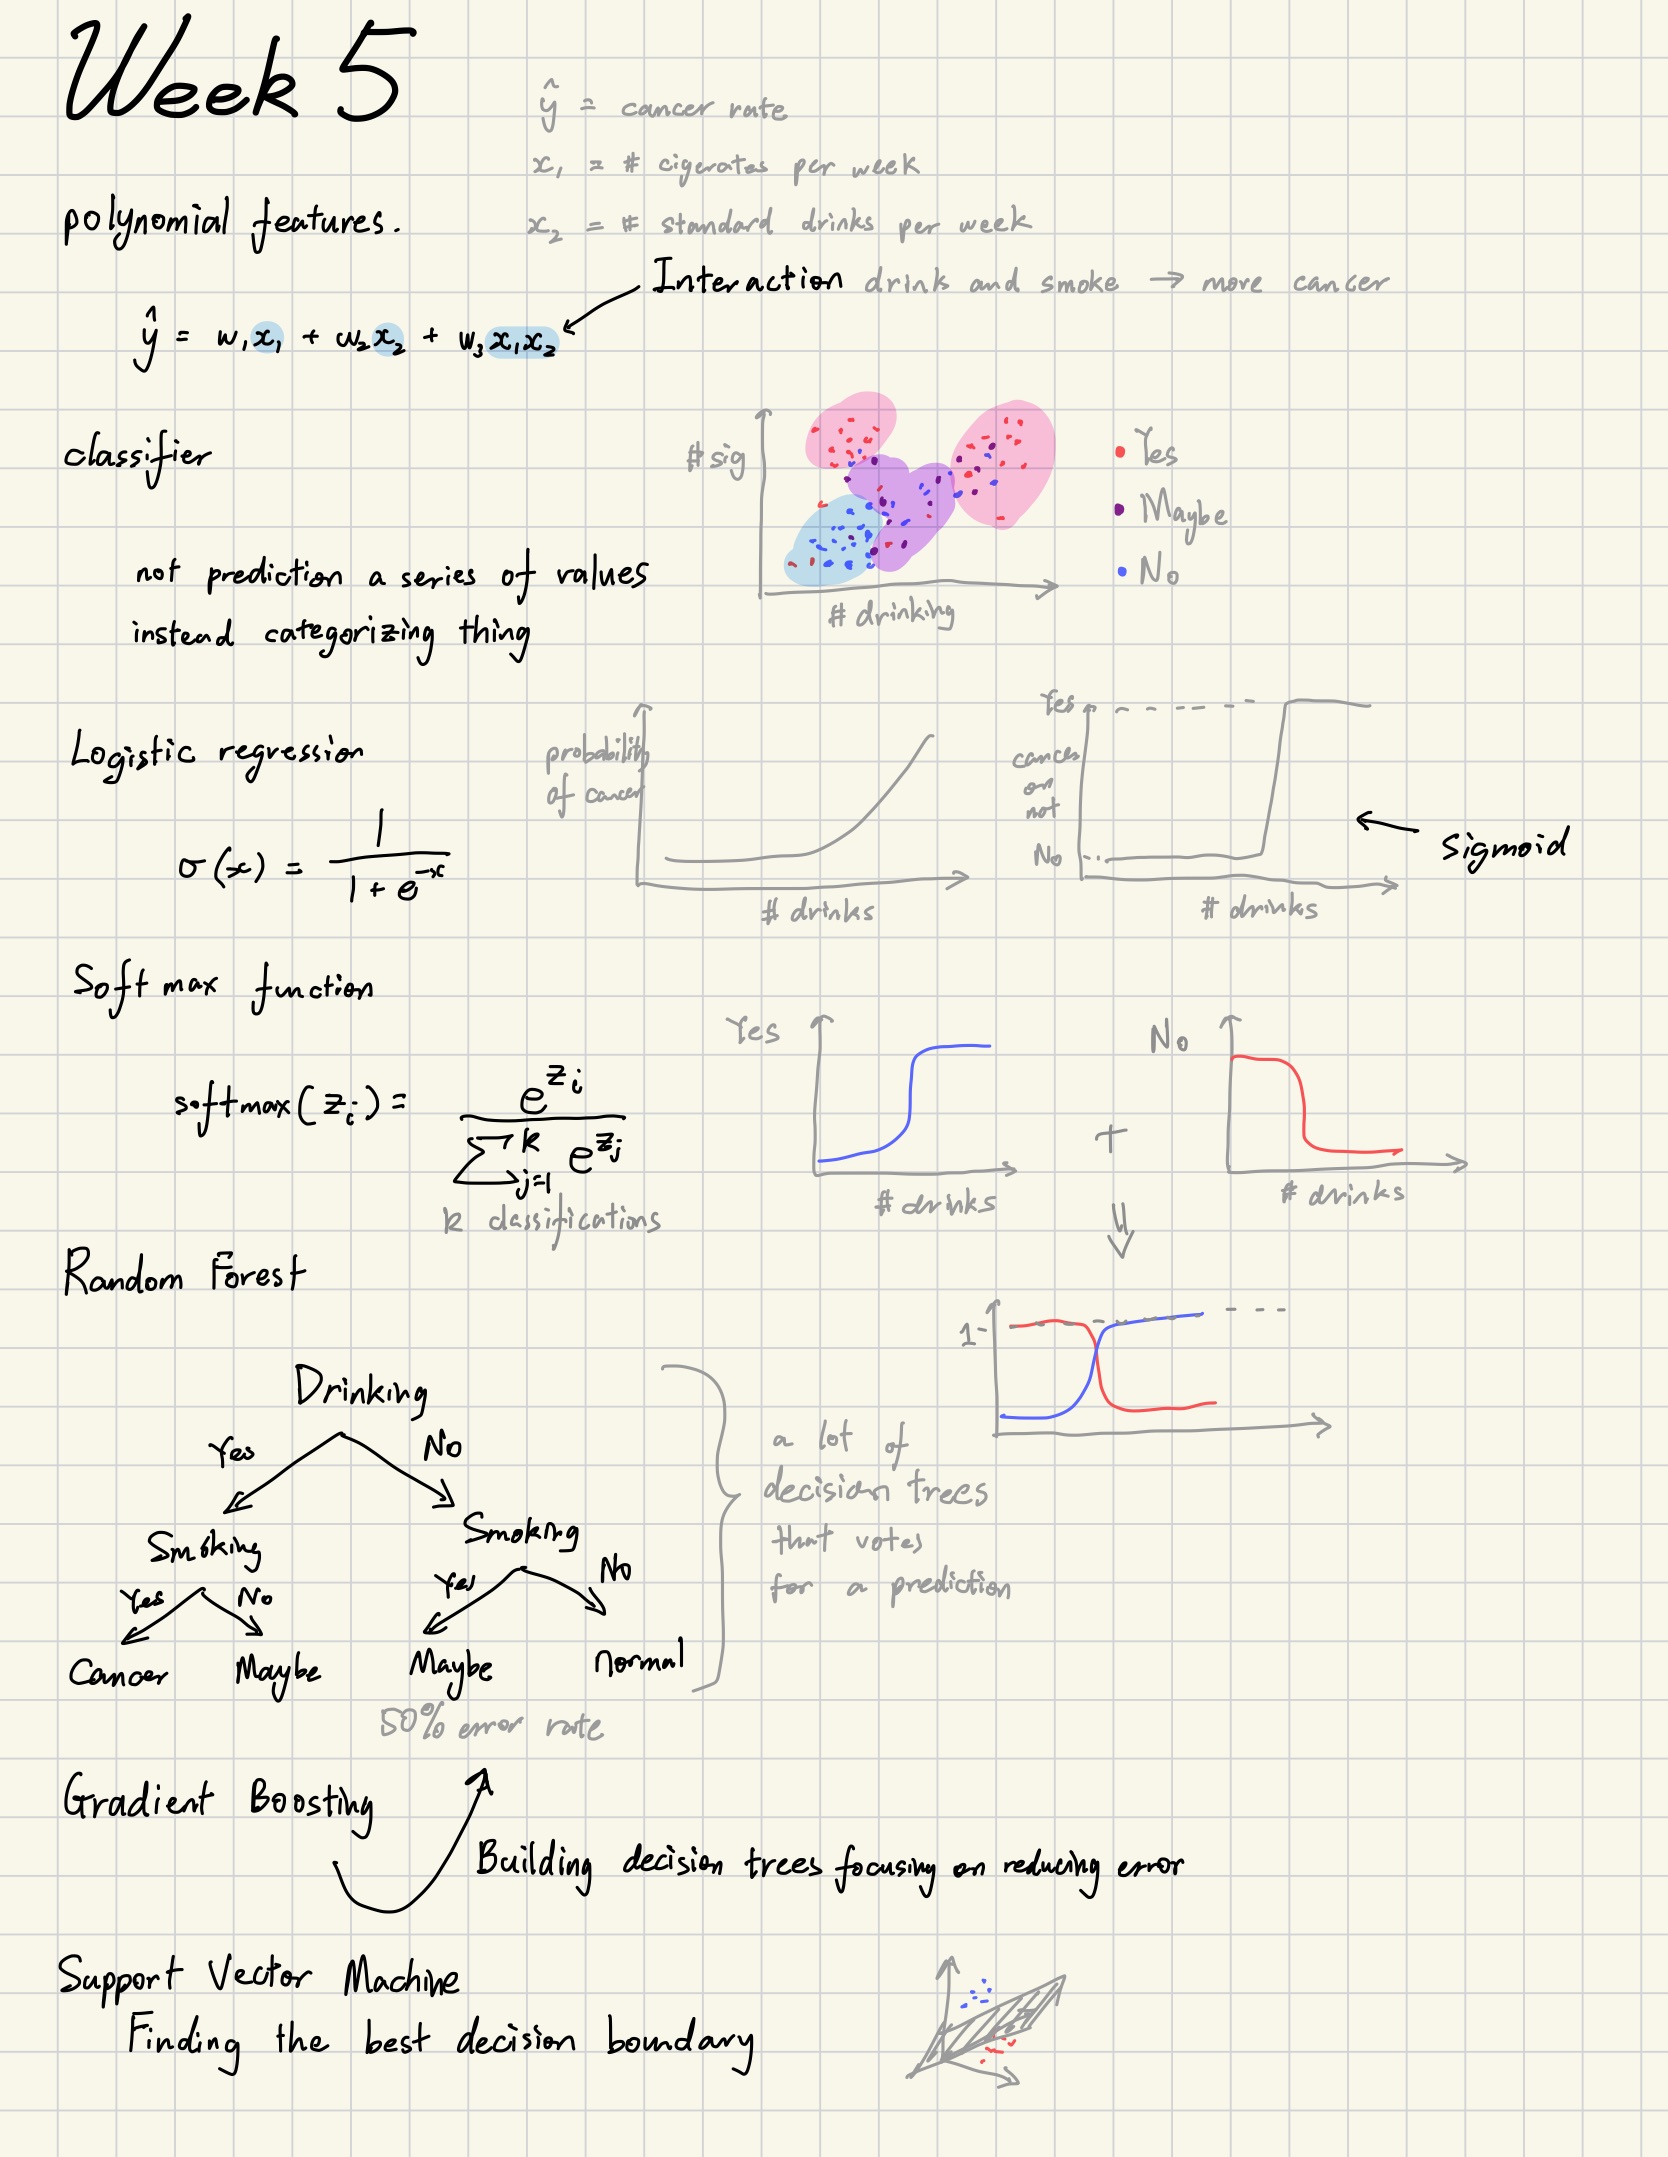 Week 5
ŷ = cancer rate
x₁ = # cigerates per week
polynomial features.
x₂ = # standard drinks per week
Interaction drink and smoke → more cancer
ŷ = w₁x₁ + w₂x₂ + w₃x₁x₂
classifier
# sig
# drinking
Yes
Maybe
No
not prediction a series of values
instead categorizing thing
Logistic regression
σ(x) = 1 / (1 + e^-x)
probability
of cancer
# drinks
Yes
cancer
or
not
No
# drinks
sigmoid
Softmax function
softmax(zᵢ) = e^zᵢ / Σ^k_j=1 e^zⱼ
k classifications
Yes
# drinks
+
No
# drinks
⇓
1-
Random Forest
Drinking
Yes No
Smoking Smoking
Yes No Yes No
Cancer Maybe Maybe normal
50% error rate
a lot of
decision trees
that votes
for a prediction
Gradient Boosting
Building decision trees focusing on reducing error
Support Vector Machine
Finding the best decision boundary